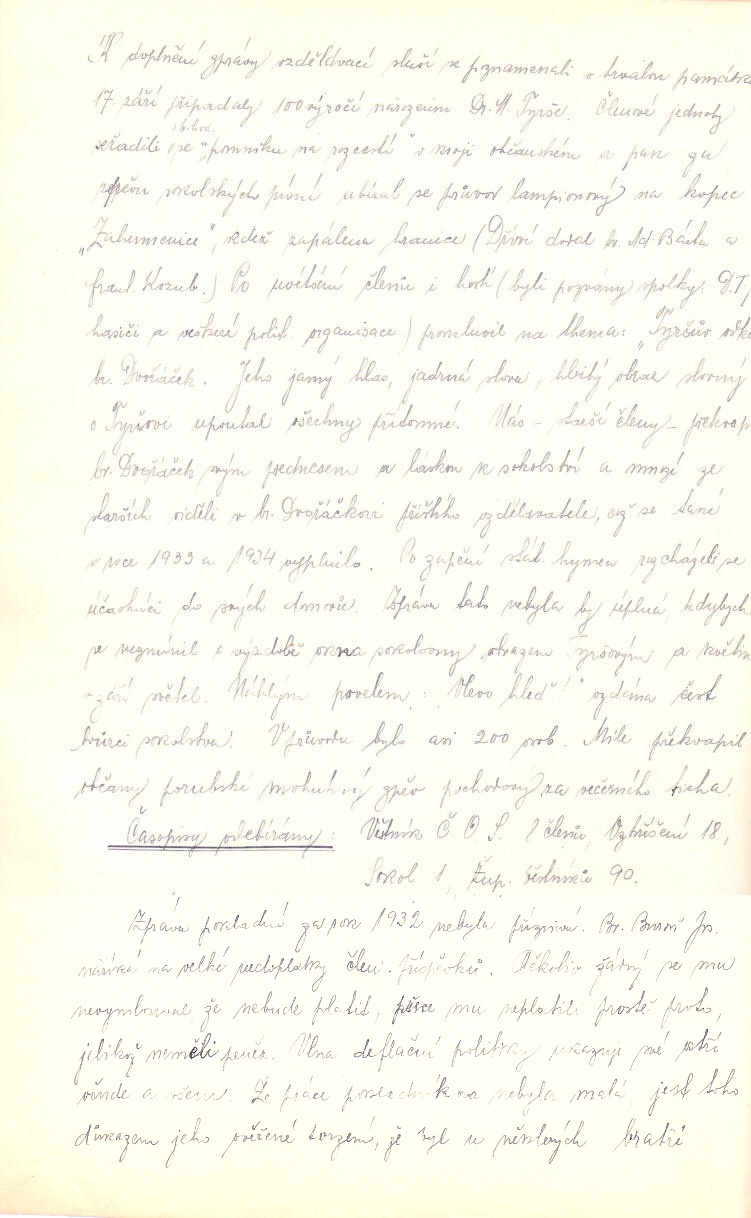 K doplnění zprávy vzdělávací sluší se poznamenati v trvalou památku
17. září připadaly 100 výročí narozenin Dr. M. Tyrše. Členové jednoty
seřadili obhod. se "pomníku na rozcestí" v kroji občanském a pak za
zpěvu sokolských písní ubíral se průvod lampionový na kopec
„Zahumenice“, kdež zapálena hranice. (Dříví dodal br. Ad. Bárta a
frant. Kozub.) Po uvítání členů i hostí (byli pozvány spolky: D.T.J
hasiči a veškeré polit. organisace.) promluvil na thema: „Tyršův odka
br. Dvořáček. Jeho jasný hlas, jadrná slova, hbitý obraz slovný
o Tyršovi upoutal všechny přítomné. Nás - starší členy - překvapi
br. Dvořáček svým přednesem a láskou k sokolství a mnozí ze
starších viděli v br. Dvořáčkovi příštího vzdělavatele, což se také
v roce 1933 a 1934 vyplnilo. Po zapění stát. hymen rozcházeli se
účastníci do svých domovů. Zpráva tato nebyla by úplná, kdybych
se nezmínil o výzdobě okna sokolovny obrazem Tyršovým a květin
v záři světel. Náhlým povelem: „Vlevo hleď!“ vzdána čest
tvůrci sokolstva. V průvodu bylo asi 200 osob. Mile překvapil
občany porubské mohutný zpěv pochodový za večerního ticha.
Časopisy odebírány: Věstník Č. O. S. 8 členů, Vzkříšení 18,
Sokol 1, Žup. věstníků 90.
Zpráva pokladní za rok 1932 nebyla příznivá. Br. Jos.
naříká na velké nedoplatky člen. příspěvků. Ačkoliv žádný se mu
nevymlouval že nebude platit, přece mu neplatili prostě proto,
jelikož neměli peněz. Vlna deflační politiky ukazuje své ostří
všude a všem. Že práce pokladníkova nebyla malá, jest toho
důkazem jeho ověřené tvrzení, že byl u některých bratří